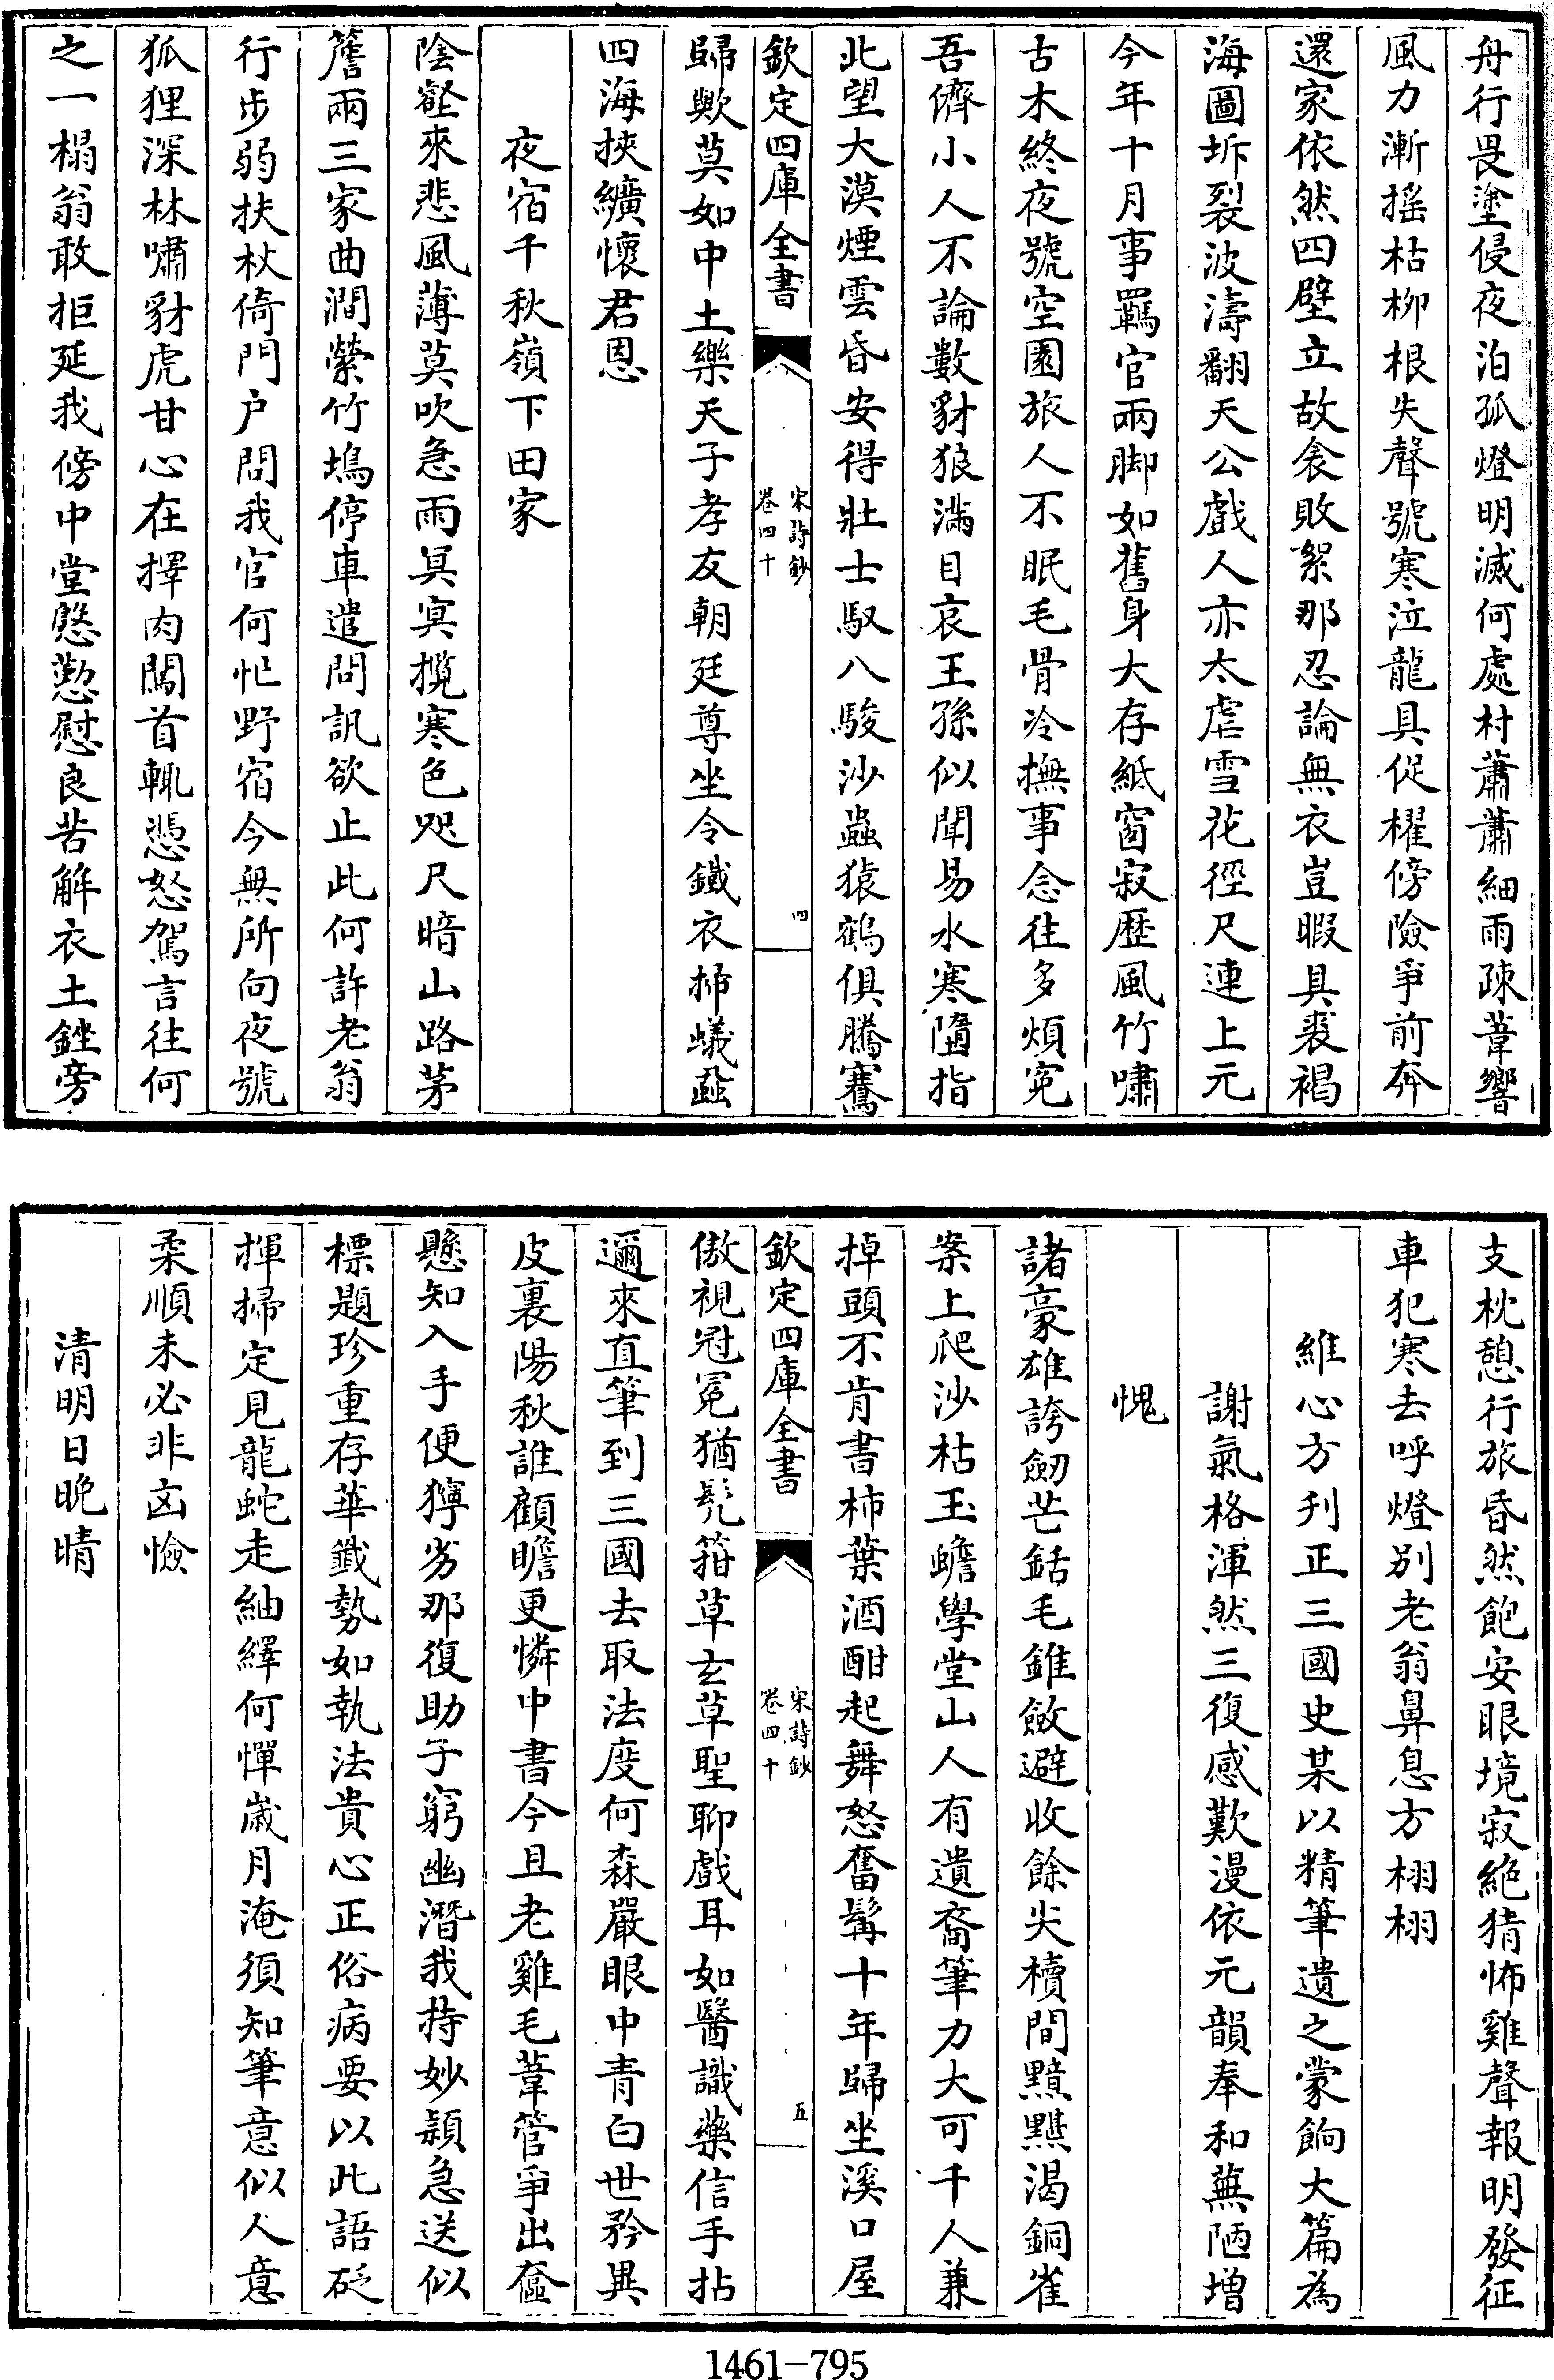 舟行畏塗侵夜泊孤燈明滅何處村蕭蕭細雨疎葦響
風力漸摇枯柳根失聲號寒泣龍具促櫂傍險爭前奔
還家依然四壁立故衾敗絮那忍論無衣豈暇具裘褐
海圖坼裂波濤翻天公戲人亦太虐雪花徑尺連上元
今年十月事羈官兩脚如舊身大存紙窗寂歴風竹嘯
古木終夜號空園旅人不眠毛骨冷撫事念往多煩寃
吾儕小人不論數豺狼滿目哀王孫似聞易水寒墮指
此望大漠煙雲昏安得壯士馭八駿沙蟲猿鶴俱騰騫
欽定四庫全書
宋詩鈔
卷四十
四
歸歟莫如中土樂天子孝友朝廷尊坐令鐵衣掃蟻蝨
四海挾纊懷君恩
夜宿千秋嶺下田家
陰壑來悲風薄莫吹急雨冥冥攬寒色咫尺暗山路茅
簷兩三家曲澗縈竹塢停車遣問訊欲止此何許老翁
行步弱扶杖倚門户問我官何忙野宿今無所向夜號
狐狸深林嘯豺虎甘心在擇肉闖首輒憑怒駕言往何
之一榻翁敢拒延我傍中堂慇懃慰良苦解衣土銼旁
支枕憩行旅昏然飽安眼境寂絶猜怖雞聲報明發征
車犯寒去呼燈别老翁鼻息方栩栩
維心方刋正三國史某以精筆遺之蒙餉大篇為
謝氣格渾然三復感歎漫依元韻奉和蕪陋增
愧
諸豪雄誇劒芒銛毛錐斂避收餘尖櫝間黯黮渴銅雀
案上爬沙枯玉蟾學堂山人有遺裔筆力大可千人兼
掉頭不肯書柿葉酒酣起舞怒奮髯十年歸坐溪口屋
欽定四庫全書
宋詩鈔
卷四十
五
傲視冠冕猶髠箝草玄草聖聊戲耳如醫識藥信手拈
邇來直筆到三國去取法度何森嚴眼中青白世矜異
皮裏陽秋誰顧瞻更憐中書今且老雞毛葦管爭出奩
懸知入手便獰劣那復助子窮幽潛我持妙穎急送似
標題珍重存華籤勢如執法貴心正俗病要以此語砭
揮掃定見龍蛇走紬繹何憚嵗月淹須知筆意似人意
柔順未必非凶憸
清明日晚晴
1461-795